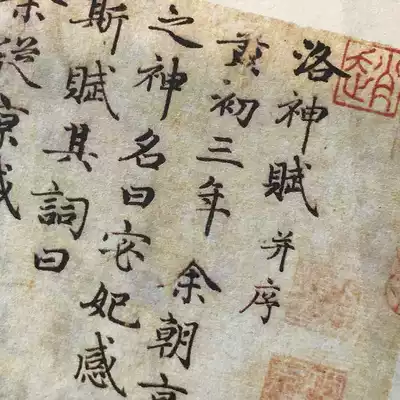 洛神賦并序
黃初三年余朝京
之神名曰宓妃感
斯賦其詞曰
余從京域